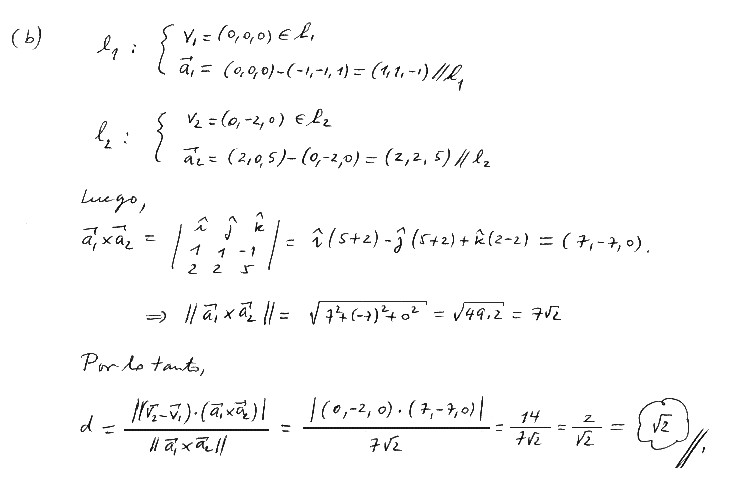 (b) l₁ : { V₁ = (0,0,0) ∈ l₁
a⃗₁ = (0,0,0)-(-1,-1,1) = (1,1,-1) // l₁
l₂ : { V₂ = (0,-2,0) ∈ l₂
a⃗₂ = (2,0,5)-(0,-2,0) = (2,2,5) // l₂
Luego,
a⃗₁ x a⃗₂ = | î ĵ k̂ ; 1 1 -1 ; 2 2 5 | = î(5+2) - ĵ(5+2) + k̂(2-2) = (7,-7,0).
⇒ || a⃗₁ x a⃗₂ || = √(7²+(-7)²+0²) = √(49.2) = 7√2
Por lo tanto,
d = |(V⃗₂-V⃗₁)·(a⃗₁xa⃗₂)| / || a⃗₁ x a⃗₂ || = |(0,-2,0)·(7,-7,0)| / 7√2 = 14 / 7√2 = 2 / √2 = √2 //.